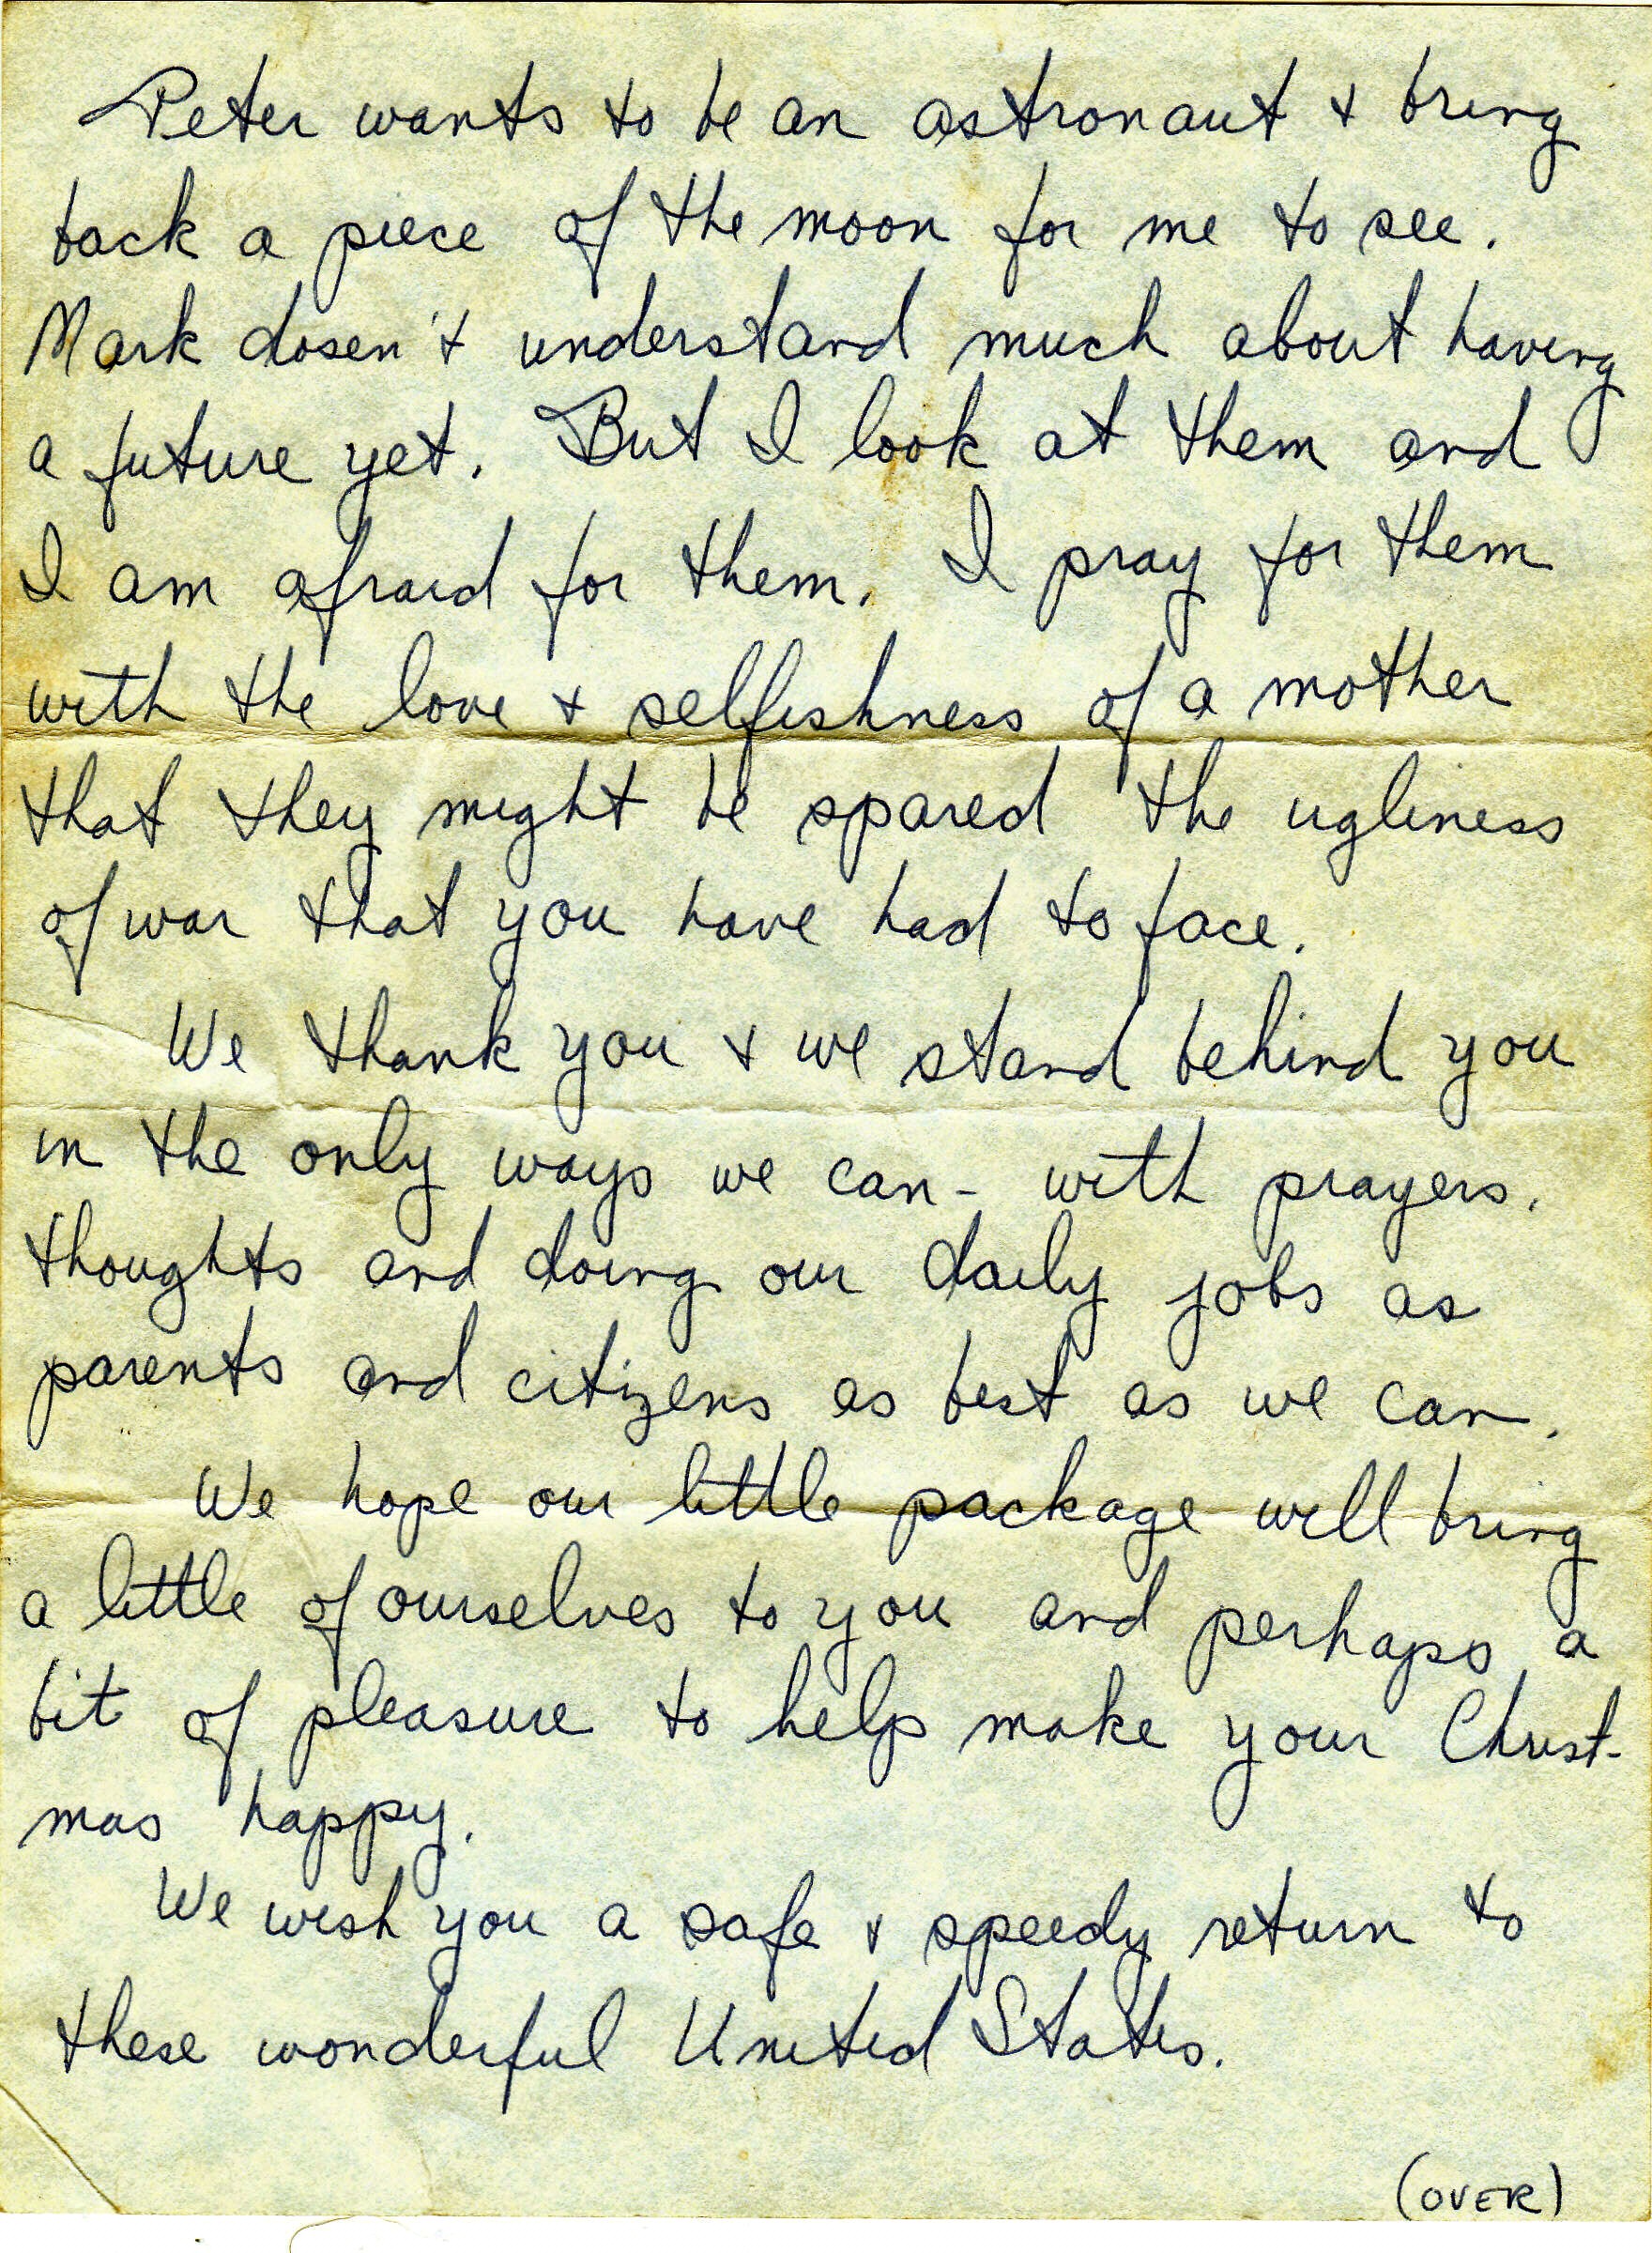 Peter wants to be an astronaut & bring
back a piece of the moon for me to see.
Mark dosen't understand much about having
a future yet. But I look at them and
I am afraid for them. I pray for them
with the love & selfishness of a mother
that they might be spared the ugliness
of war that you have had to face.
We thank you & we stand behind you
in the only ways we can - with prayers.
thoughts and doing our daily jobs as
parents and citizens as best as we can.
We hope our little package will bring
a little of ourselves to you and perhaps a
bit of pleasure to help make your Christ-
mas happy.
We wish you a safe & speedy return to
these wonderful United States.
(OVER)